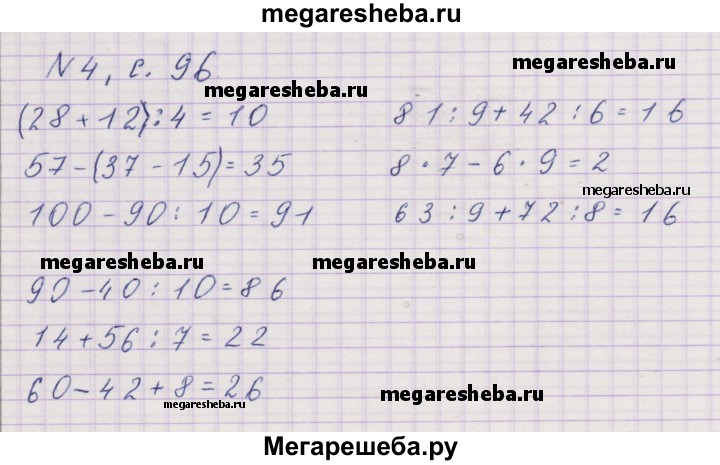 megaresheba.ru
N 4, с. 96
megaresheba.ru
megaresheba.ru
(28 + 12) : 4 = 10
81 : 9 + 42 : 6 = 16
57 - (37 - 15) = 35
8 · 7 - 6 · 9 = 2
megaresheba.ru
100 - 90 : 10 = 91
63 : 9 + 72 : 8 = 16
megaresheba.ru
megaresheba.ru
90 - 40 : 10 = 86
14 + 56 : 7 = 22
60 - 42 + 8 = 26
megaresheba.ru
megaresheba.ru
Мегарешеба.ру